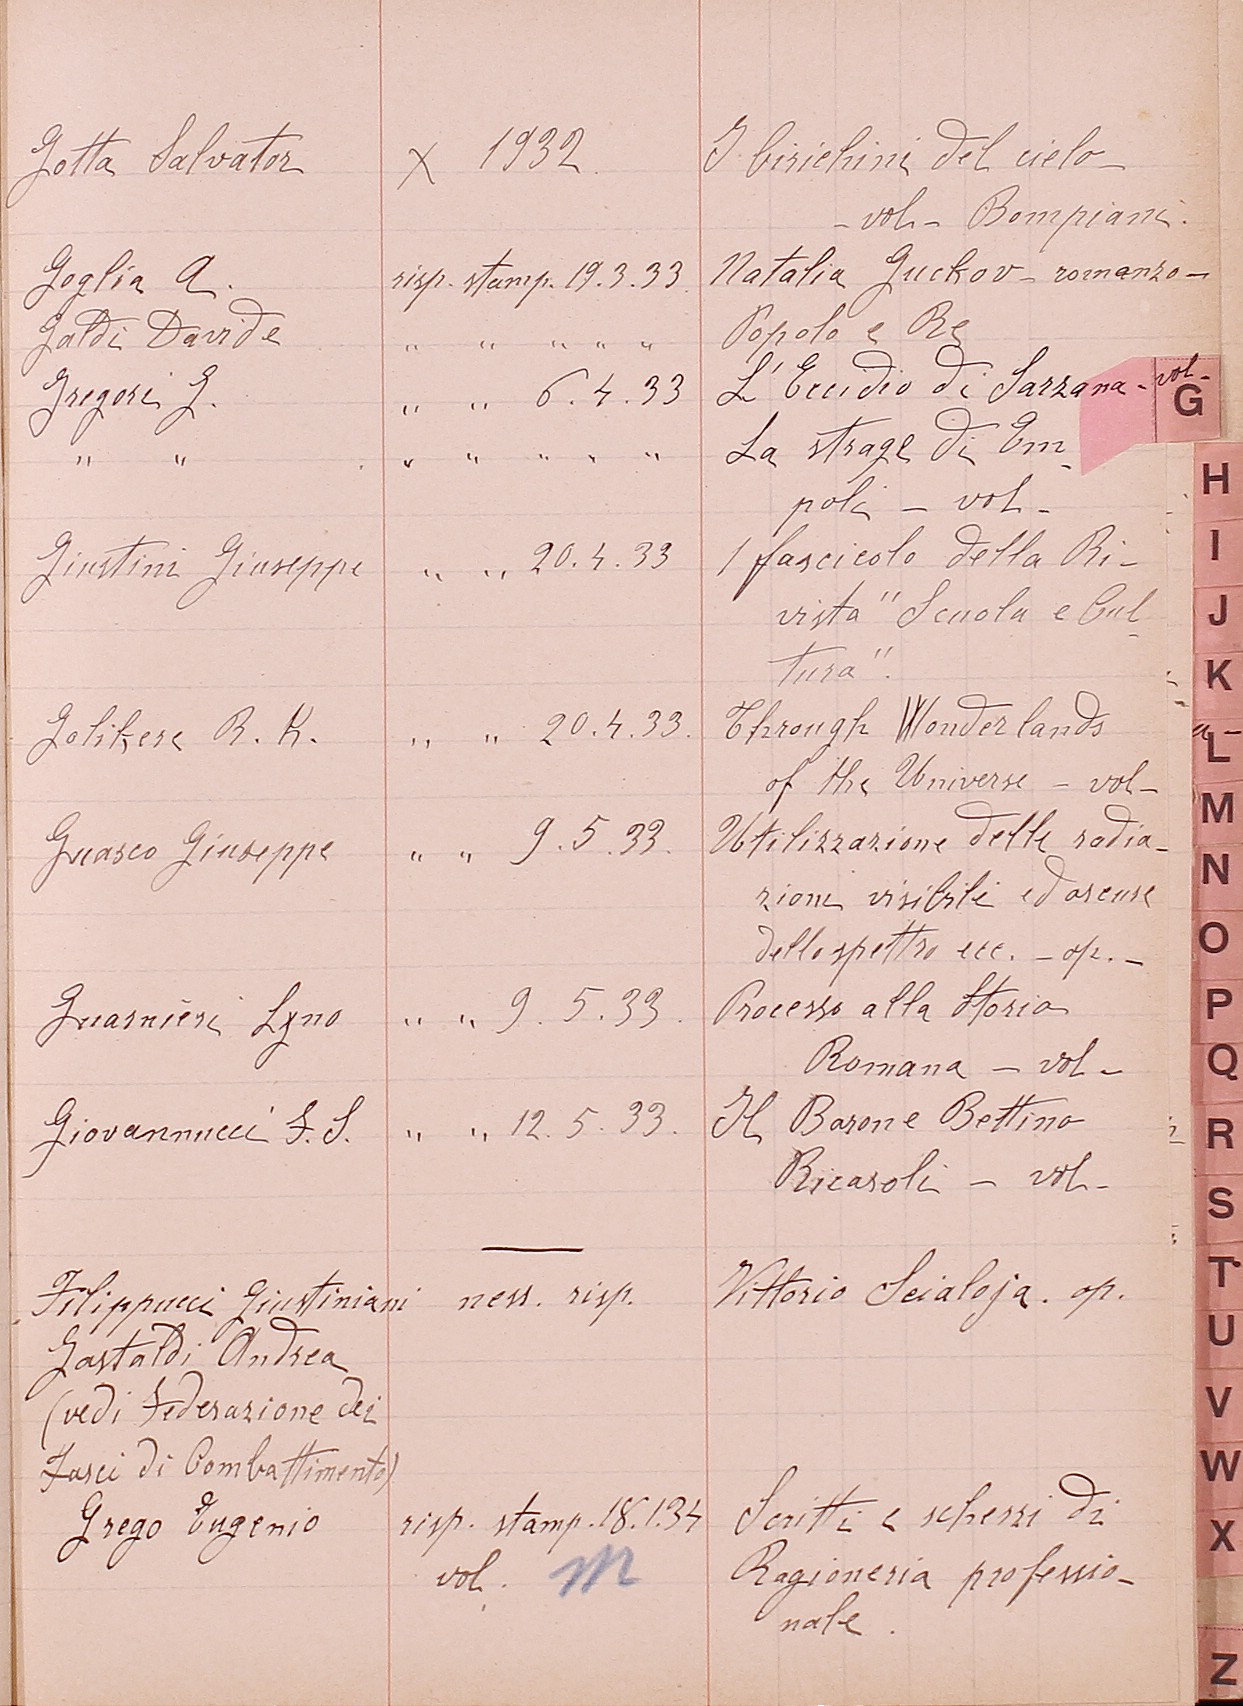 Gotta Salvator X 1932 I birichini del cielo
- vol - Bompiani.
Goglia A. risp. stamp. 19.3.33 Natalia Guckov - romanzo -
Galdi Davide " " " " " Popolo e Re
Gregori G. " " 6.4.33 L'Eccidio di Sarzana - vol -
" " " " " " " La strage di Em-
poli - vol -
Giustini Giuseppe " " 20.4.33 1 fascicolo della Ri-
vista "Scuola e Cul-
tura".
Golikere R. K. " " 20.4.33. Through Wonderlands
of the Universe - vol -
Guasco Giuseppe " " 9.5.33. Utilizzazione delle radia-
zioni visibili ed oscure
dello spettro ecc. - op. -
Guarnieri Lyno " " 9.5.33. Processo alla Storia
Romana - vol -
Giovannucci F. S. " " 12.5.33. Il Barone Bettino
Ricasoli - vol -
Filippucci Giustiniani ness. risp. Vittorio Scialoja. op.
Gastaldi Andrea
(vedi Federazione dei
Fasci di Combattimento)
Grego Eugenio risp. stamp. 18.1.34 Scritti e scherzi di
vol. M Ragioneria professio-
nale.
G
H
I
J
K
L
M
N
O
P
Q
R
S
T
U
V
W
X
Z